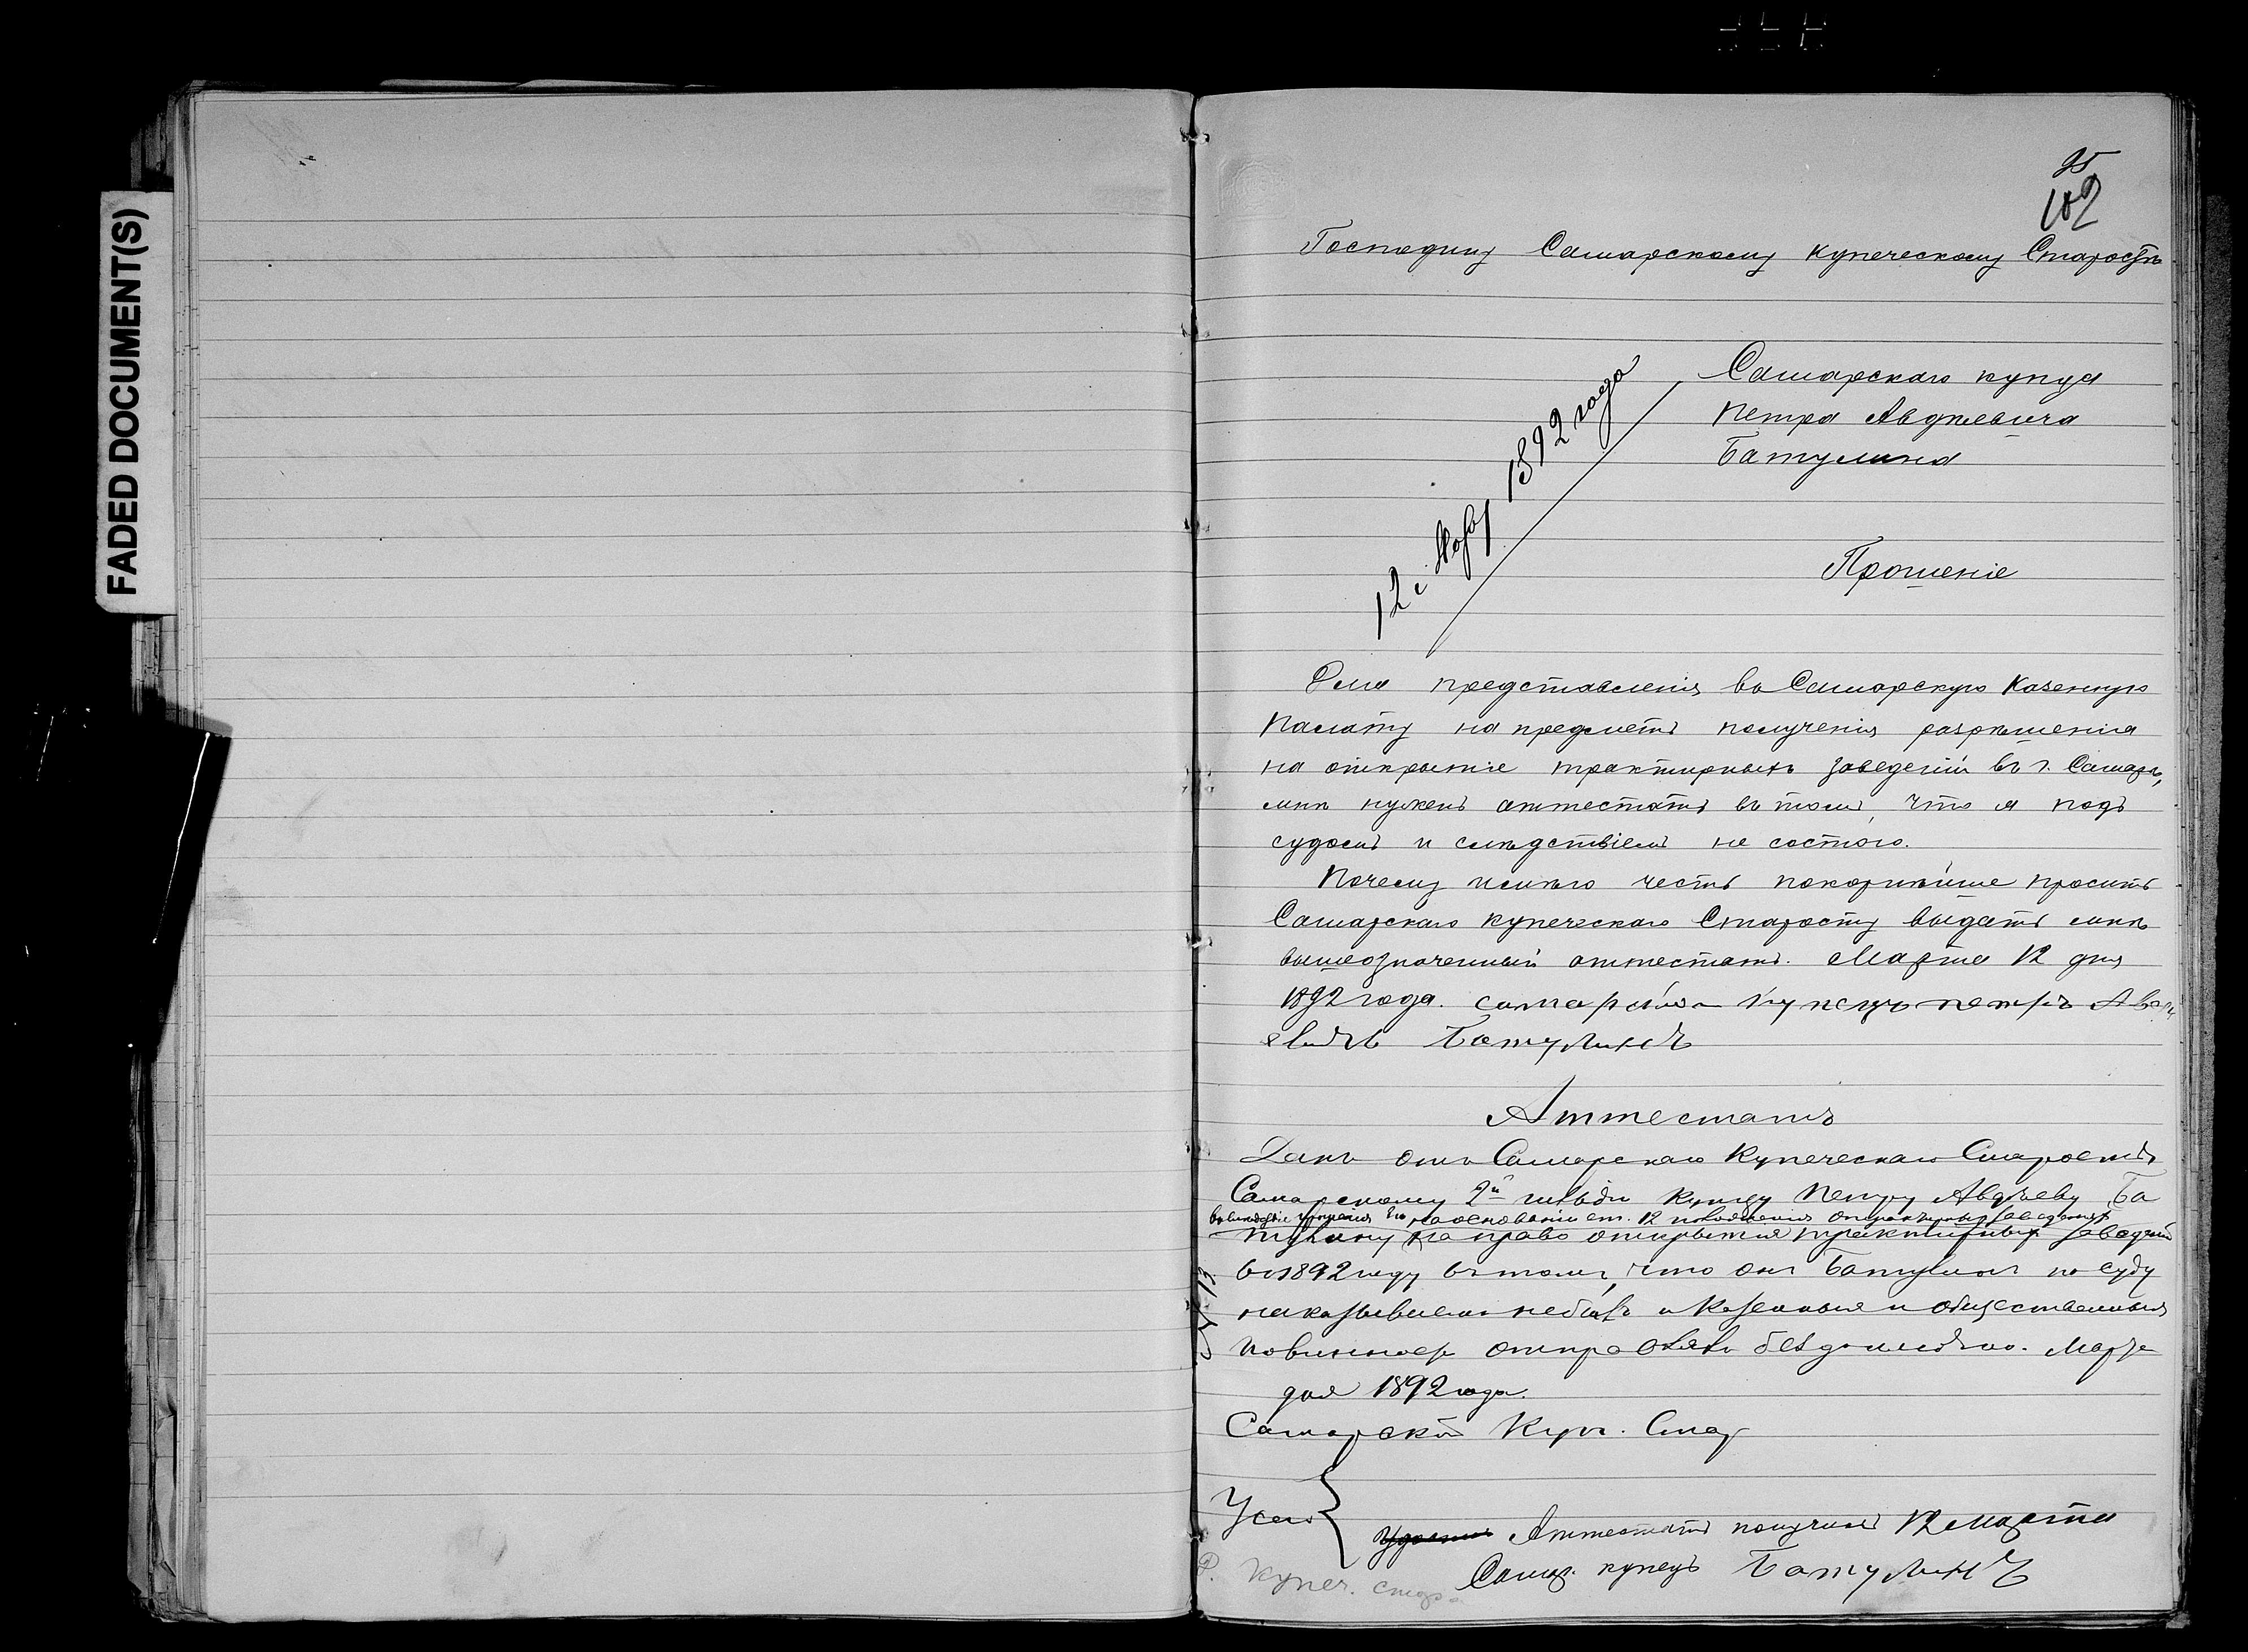 FADED DOCUMENT(S)
95
102
Господину Самарскому купеческому Старостѣ
Самарскаго купца
Петра Авдѣевича
Батулина
12 1892 года
Прошеніе
Для представленія въ Самарскую Казенную
Палату на предметъ полученія разрѣшенія
на открытіе трактирныхъ заведеній въ г. Самарѣ,
мнѣ нуженъ аттестатъ въ томъ, что я подъ
судомъ и слѣдствіемъ не состою.
Почему имѣю честь покорнѣйше просить
Самарскаго купеческаго Старосту выдать мнѣ
вышеозначенный аттестатъ. Марта 12 дня
1892 года. купецъ петръ
Батулинъ
Аттестатъ
Данъ отъ Самарскаго Купеческаго Старосты
Самарскому 2й гильдіи Купцу Петру Авдѣеву Ба
на основаніи ст. 12 положенія
тулину на право открытія трактирныхъ заведеній
въ 1892 году въ томъ, что онъ Батулинъ по суду
наказываемъ небылъ и Казенныя и общественныя
повинности отправлялъ бездоимочно. Марта
дня 1892 года.
Самарскій Куп. Стар
Аттестатъ получилъ 12 марта
Самар. купецъ Батулинъ
Купеч. Стар.